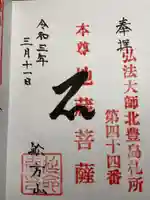 奉拝
弘法大師北豊島札所
第四十四番
本尊地蔵菩薩
令和三年
三月十一日